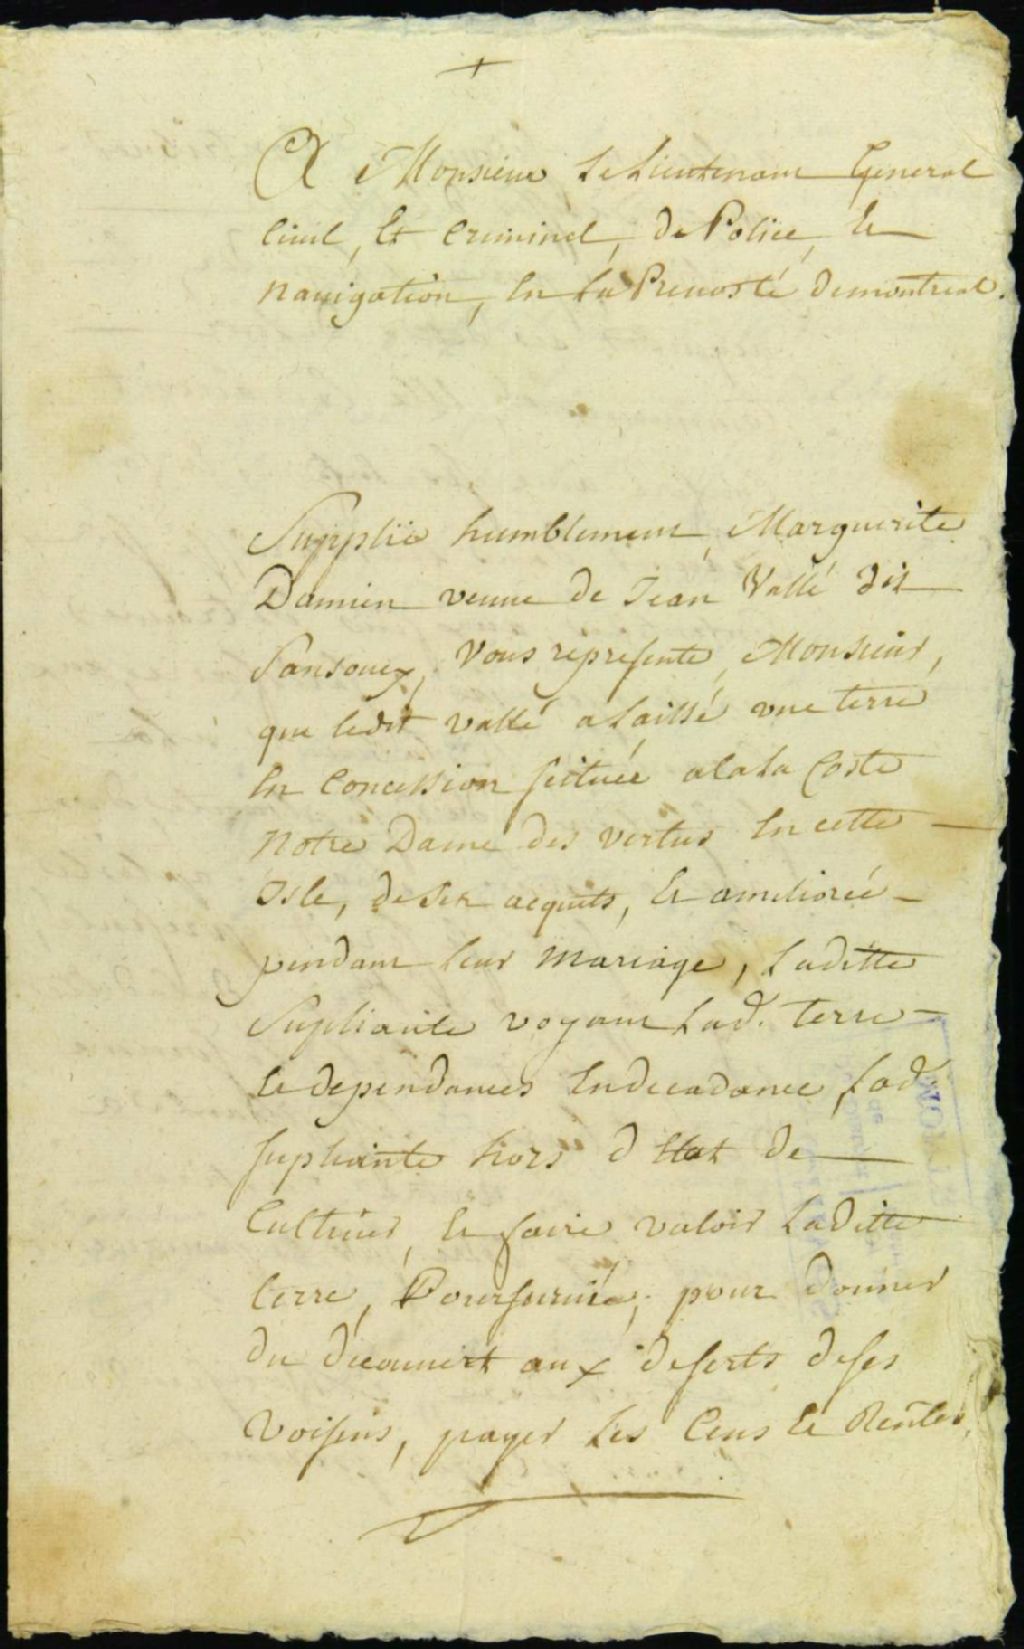 +
A Monsieur Le Lieutenant General
Civil, Et Criminel, de Police, Et
navigation, En La Prevosté demontreal.
Supplie humblement, Marguerite
Damien veuve de Jean Vallé dit
Sansoucy, Vous represente, Monsieur,
que ledit vallé a laissé une terre
En Concession scituée a la La Coste
Notre Dame des vertus En cette
Isle, de Ses acquets, Et ameliorée
pendant leur mariage, Laditte
Supliante voyant Lad. terre
Et dependances En decadance, Lad
supliante hors d Etat de
Cultiver, Et faire valoir Laditte
terre, pour donner
du decouvert aux deserts de ses
Voisins, payer Les Cens Et Rentes,